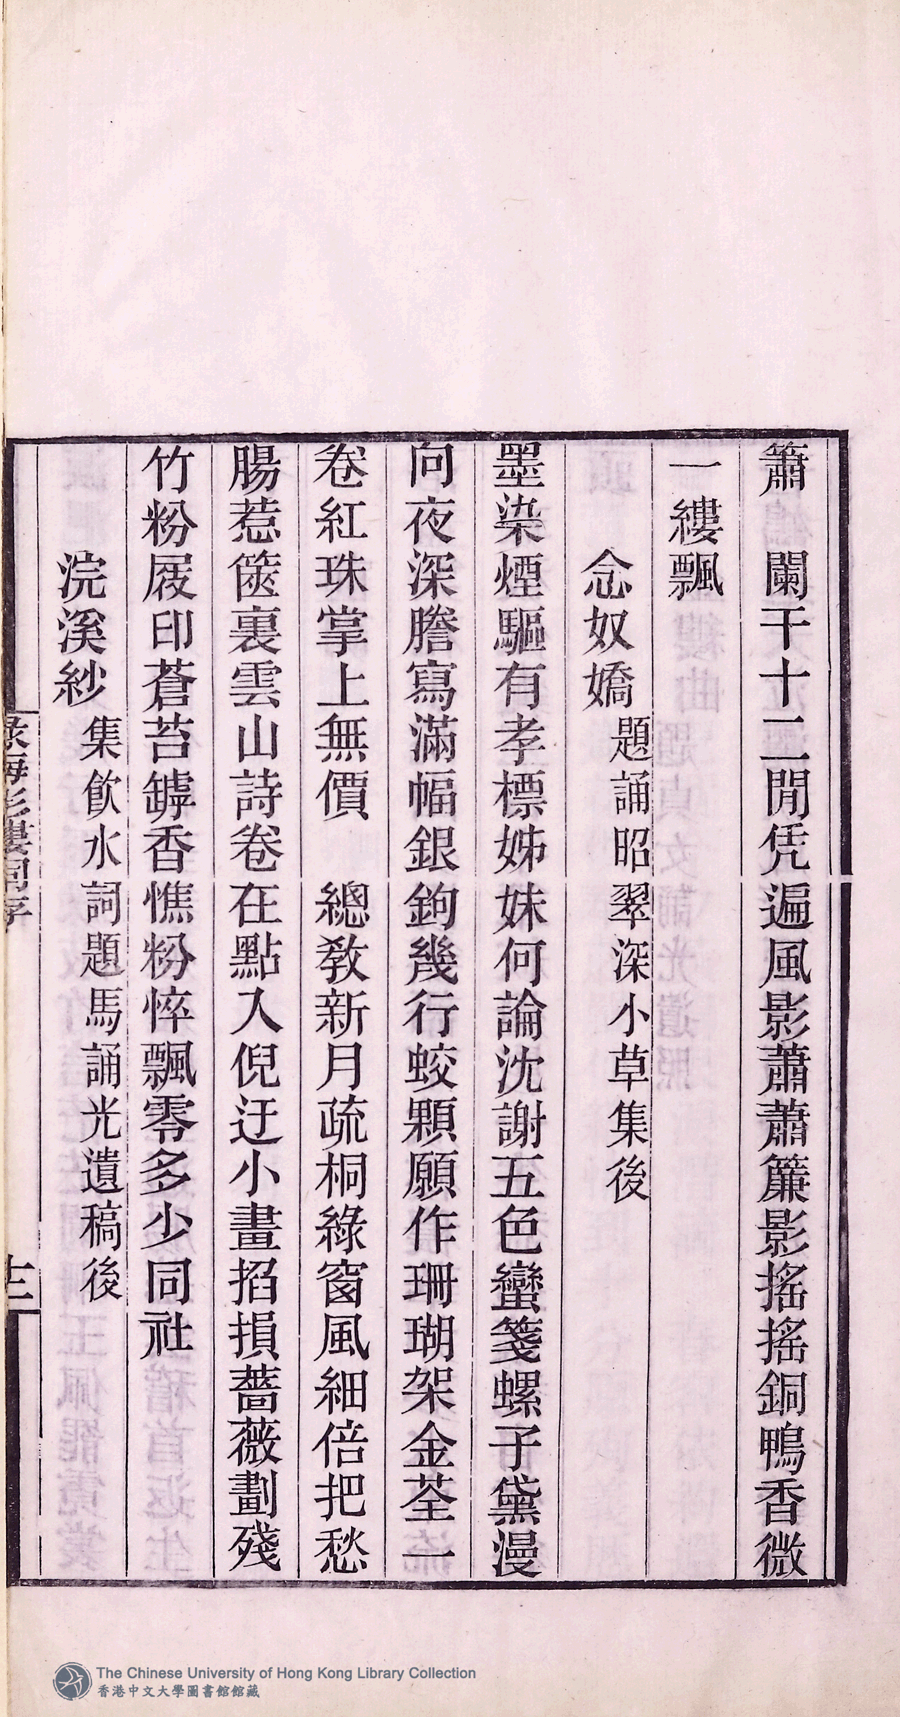 簫　闌干十二閒凭遍風影蕭蕭簾影搖搖銅鴨香微
一縷飄
念奴嬌 題誦昭翠深小草集後
墨染煙驅有孝標姊妹何論沈謝五色蠻箋螺子黛漫
向夜深謄寫滿幅銀鉤幾行蛟顆願作珊瑚架金荃一
卷紅珠掌上無價　總教新月疏桐綠窗風細倍把愁
腸惹篋裏雲山詩卷在點入倪迂小畫掐損薔薇劃殘
竹粉屐印蒼苔罅香憔粉悴飄零多少同社
浣溪紗 集飲水詞題馬誦光遺稿後
影樓詞序
十三
The Chinese University of Hong Kong Library Collection
香港中文大學圖書館館藏